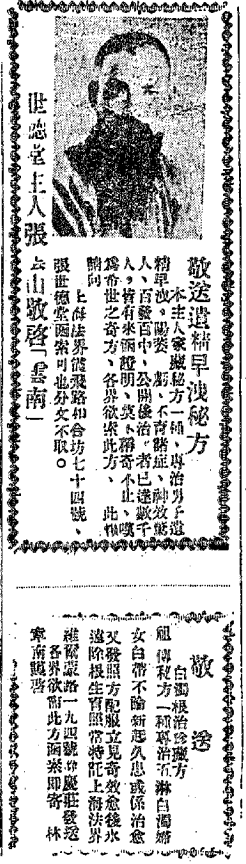 敬送遺精早洩秘方
本主人家藏秘方一種、專治男子遺
精早洩、陽萎、虧、不育諸症、神效驚
人、百發百中、公開後治者已達數千
人、皆有來函證明、莫不稱奇不止、噗
為希世之奇方、各界欲索此方、此惟
請向
上海法界霞飛路和合坊七十四號、
張世德堂函索可也分文不取。
世德堂主人張去山敬啓「雲南」
敬送
白濁根治珍藏方
祖傳秘方一種專治五淋白濁婦
女白帶不論新起久患或係治愈
又發照方配服立見奇效愈後永
遠除根生育照常特託上海法界
維爾蒙路一九四號 慶莊發送
各界欲 此方函索即寄 林
韋南謹啓